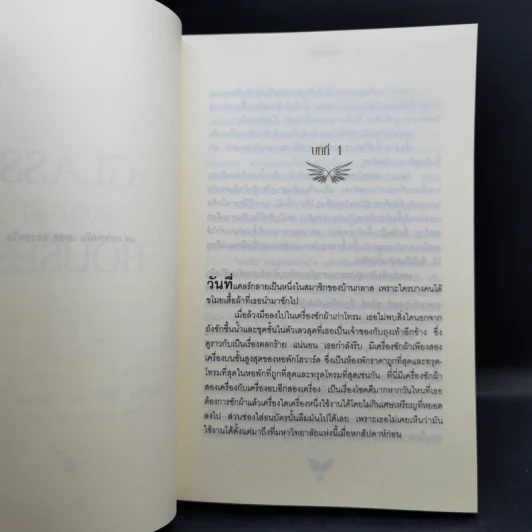 บทที่ 1
วันที่แคลร์กลายเป็นหนึ่งในสมาชิกของบ้านกลาส เพราะใครบางคนได้
ขโมยเสื้อผ้าที่เธอนำมาซักไป
เมื่อล้วงมือลงไปในเครื่องซักผ้าเก่าโทรม เธอไม่พบสิ่งใดนอกจาก
ถังซักชื้นน้ำและชุดชั้นในตัวเลวสุดที่เธอเป็นเจ้าของกับถุงเท้าอีกข้าง ซึ่ง
ดูราวกับเป็นเรื่องตลกร้าย แน่นอน เธอกำลังรีบ มีเครื่องซักผ้าเพียงสอง
เครื่องบนชั้นสูงสุดของหอพักโฮวาร์ด ซึ่งเป็นห้องพักราคาถูกที่สุดและทรุด-
โทรมที่สุดในหอพักที่ถูกที่สุดและทรุดโทรมที่สุดเช่นกัน ที่นี่มีเครื่องซักผ้า
สองเครื่องกับเครื่องอบอีกสองเครื่อง เป็นเรื่องโชคดีมากหากวันไหนที่เธอ
ต้องการซักผ้าแล้วเครื่องใดเครื่องหนึ่งใช้งานได้โดยไม่กินเศษเหรียญที่หยอด
ลงไป ส่วนช่องใส่ธนบัตรนั้นลืมมันไปได้เลย เพราะเธอไม่เคยเห็นว่ามัน
ใช้งานได้ตั้งแต่มาถึงที่มหาวิทยาลัยแห่งนี้เมื่อหกสัปดาห์ก่อน